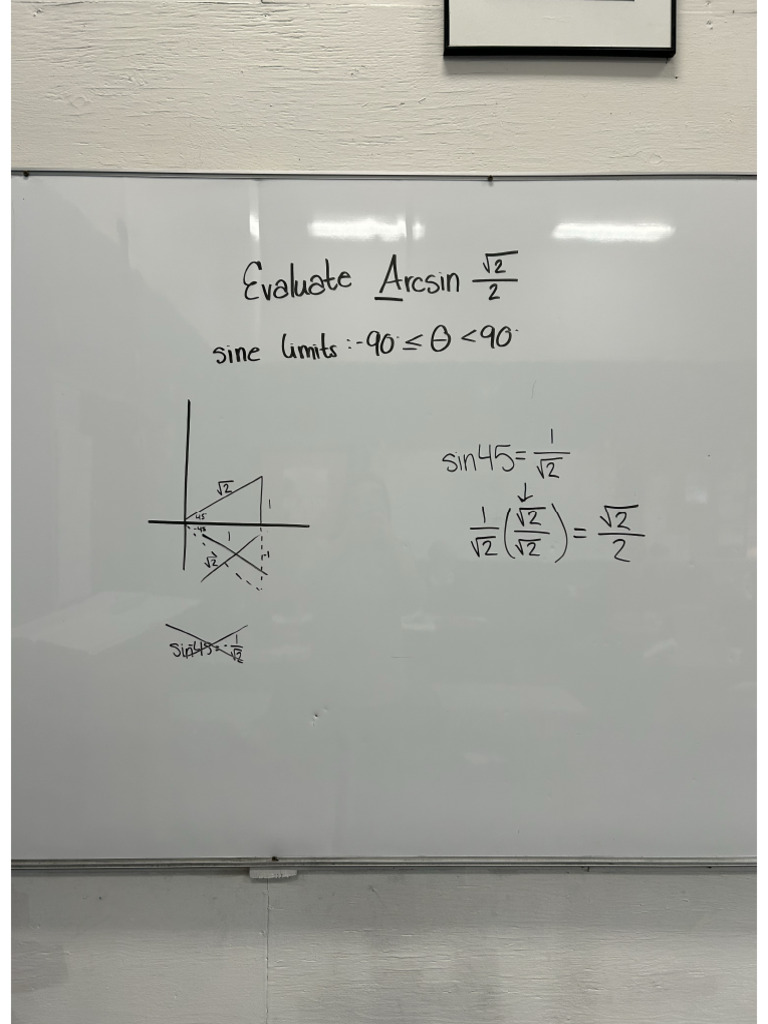 Evaluate Arcsin √2/2
sine limits: -90° ≤ θ < 90°
√2
45
1
-45
1
√2
-1
sin-45 = -1/√2
sin45 = 1/√2
↓
1/√2 (√2/√2) = √2/2